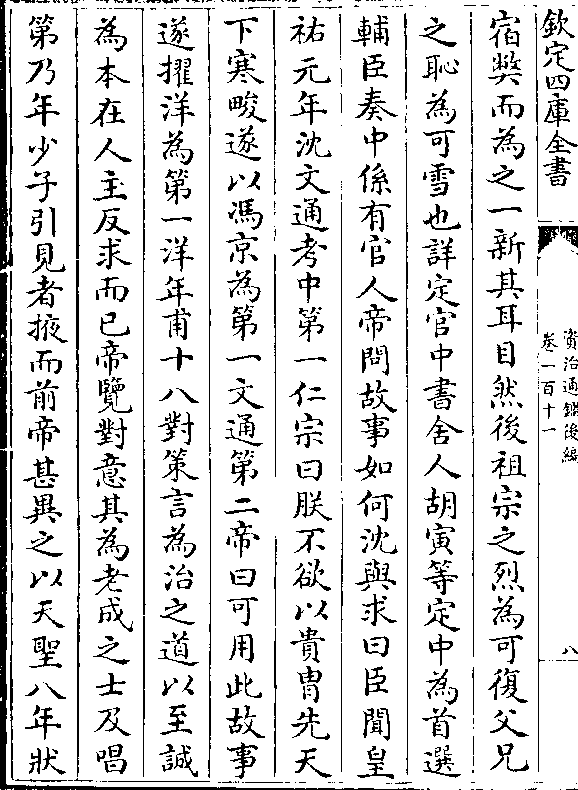 欽定四庫全書
資治通鑑後編
卷一百十一
八
宿獘而為之一新其耳目然後祖宗之烈為可復父兄
之恥為可雪也詳定官中書舍人胡寅等定中為首選
輔臣奏中係有官人帝問故事如何沈與求曰臣聞皇
祐元年沈文通考中第一仁宗曰朕不欲以貴胄先天
下寒畯遂以馮京為第一文通第二帝曰可用此故事
遂擢洋為第一洋年甫十八對策言為治之道以至誠
為本在人主反求而已帝覽對意其為老成之士及唱
第乃年少子引見者掖而前帝甚異之以天聖八年狀